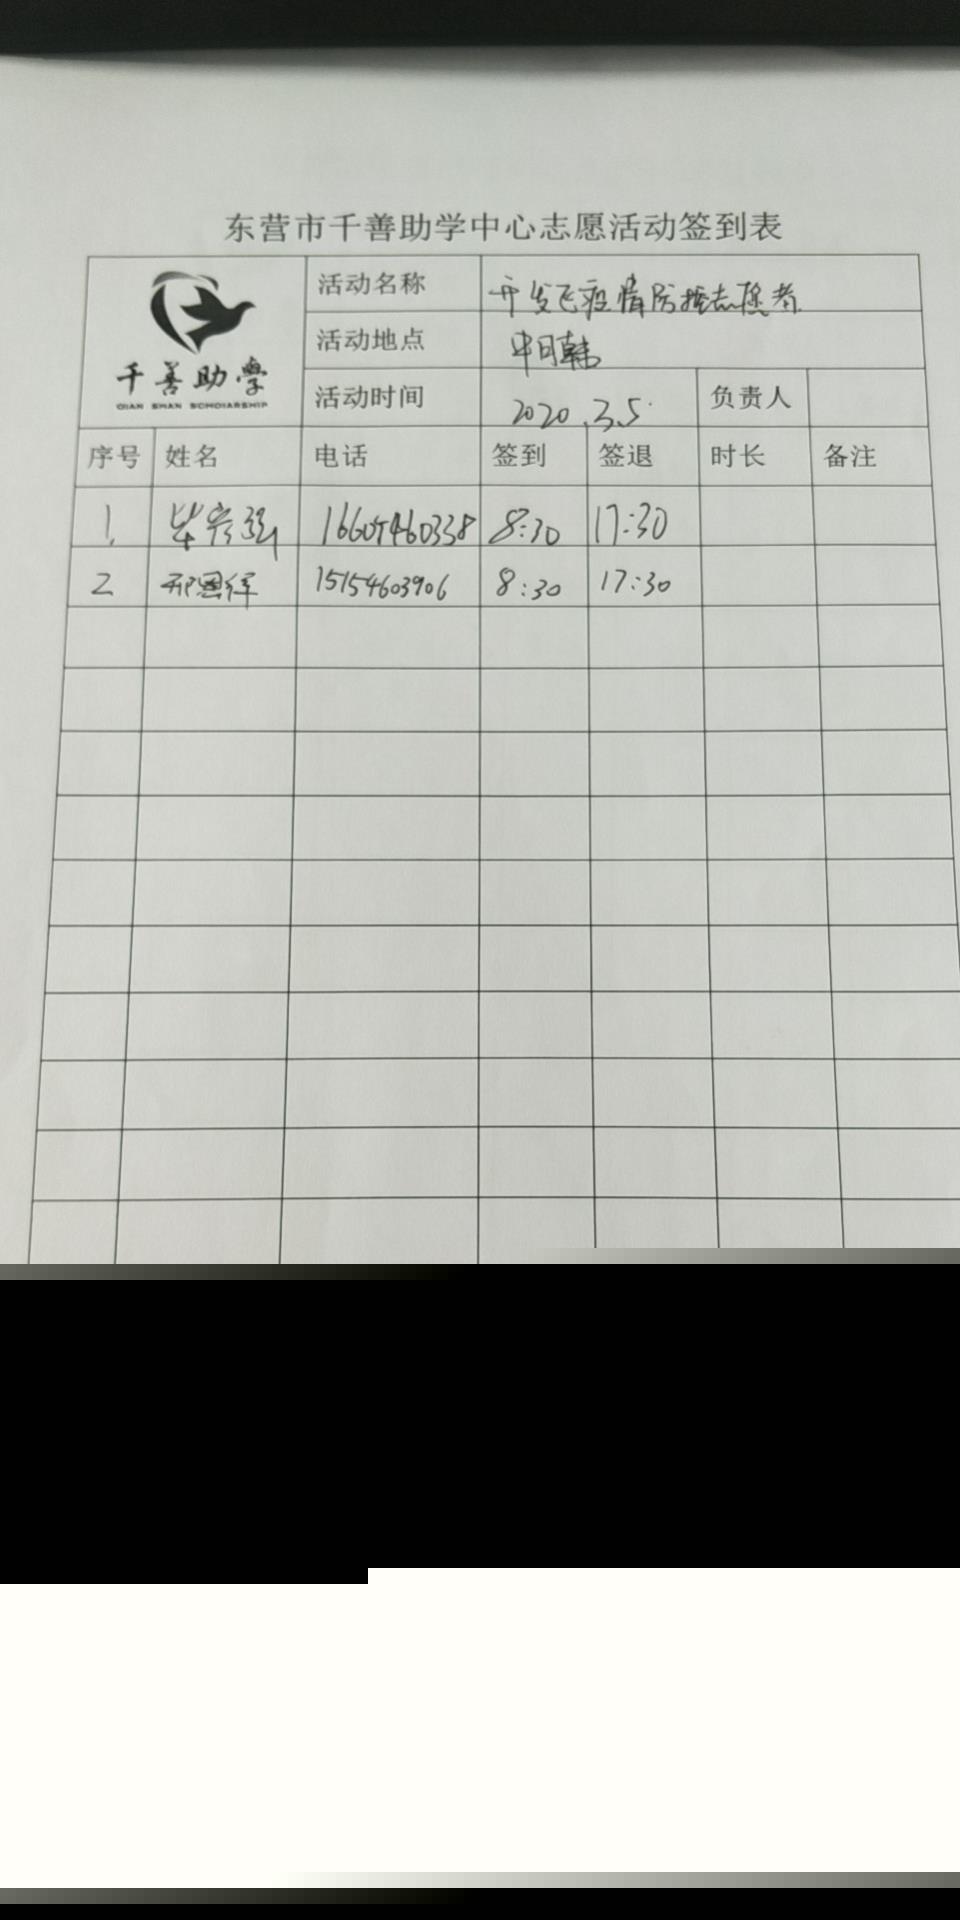 东营市千善助学中心志愿活动签到表
千善助學
QIAN SHAN SCHOLARSHIP
活动名称 开发区疫情防控志愿者
活动地点 中日韩
活动时间 2020.3.5. 负责人
序号 姓名 电话 签到 签退 时长 备注
1. 毕 强 16605460338 8:30 17:30
2 邢恩 15154603906 8:30 17:30